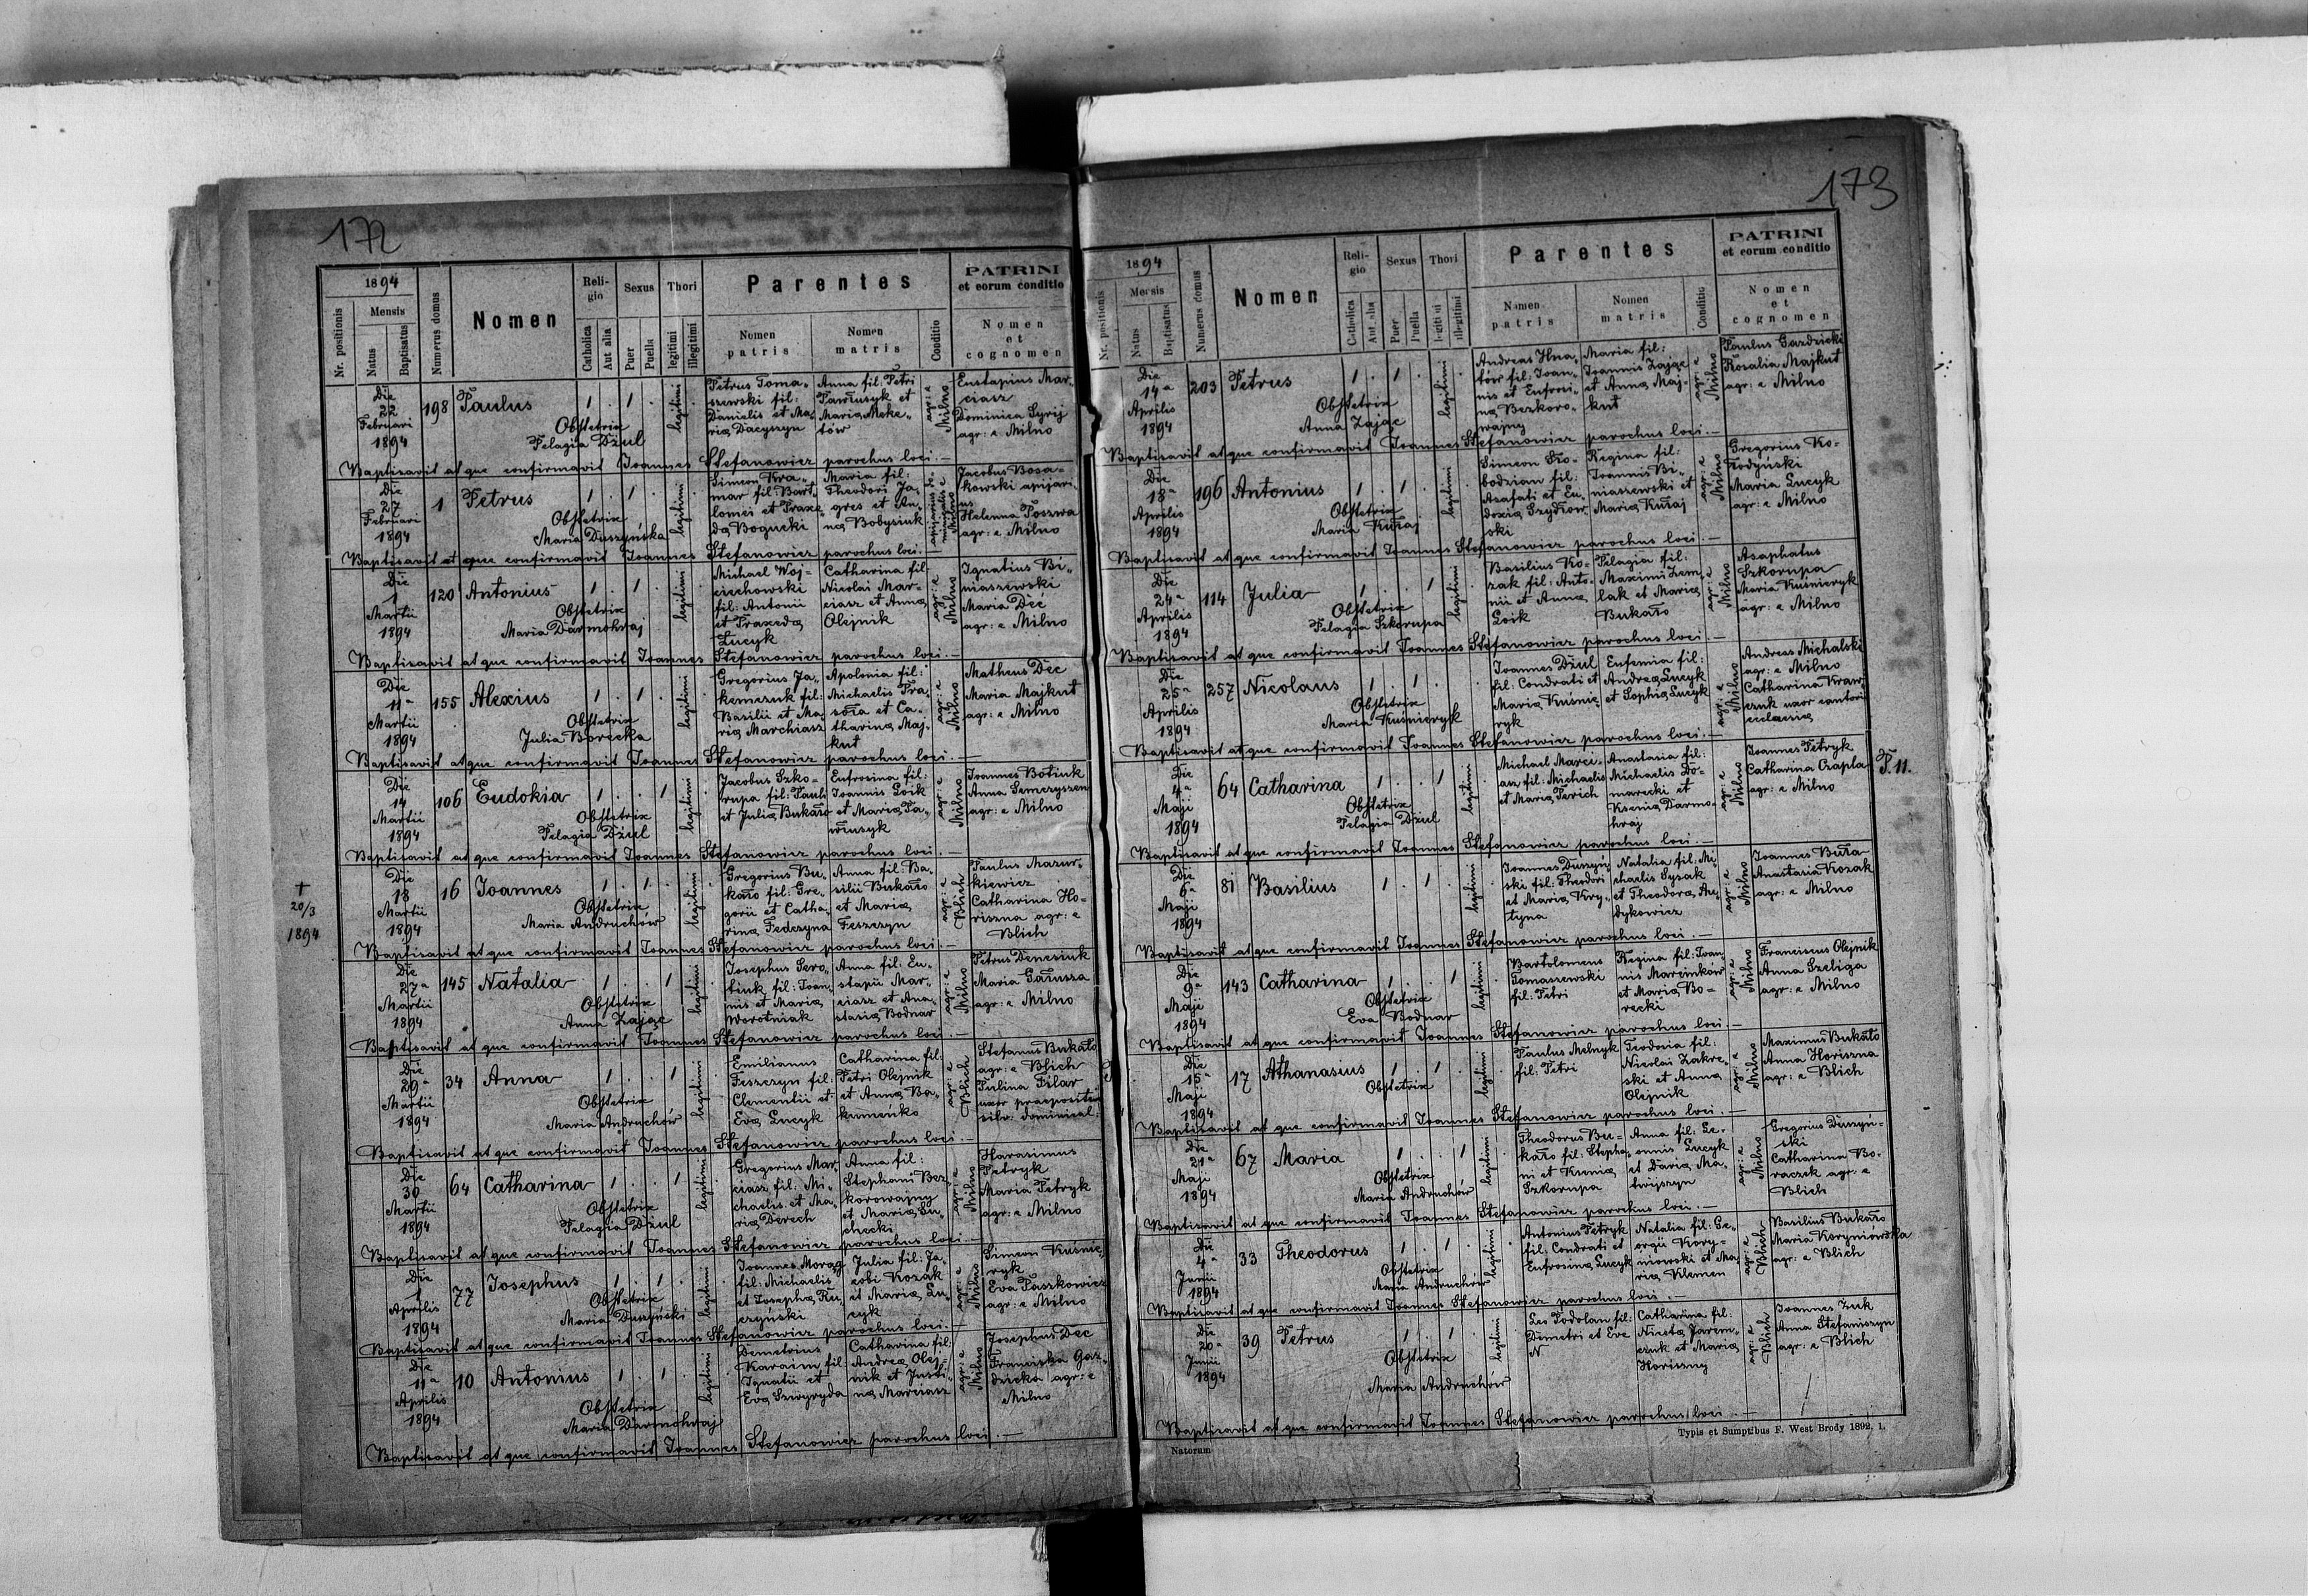 172
1894
Nr. positionis
Mensis
Natus
Baptisatus
Numerus domus
Nomen
Religio
Catholica
Aut alia
Sexus
Puer
Puella
Thori
legitimi
illegitimi
Parentes
Nomen patris
Nomen matris
Conditio
PATRINI
et eorum conditio
Nomen
et
cognomen
Die
22
Februari
1894
198
Paulus
1 . 1 .
legitimi
Obstetrix
Pelagia Dżul
Petrus Toma-
szewski fil:
Danielis et Ma-
ria Dacyszyn
Anna fil: Petri
Pawłusyk et
Maria Meke-
tów
agr: e
Milno
Eustapius Mar-
ciasz
Dominica Syrij
agr: e Milno
Baptisavit atque confirmavit Joannes Stefanowicz parochus loci.—
Die
27
Februari
1894
1
Petrus
1 . 1 .
legitimi
Obstetrix
Maria Duszyńska
Simeon Kra-
mar fil: Bart-
lomei et Praxe-
da Bogucki
Maria fil:
Theodori Ja-
gres et An-
na Bobysiuk
Jacobus Bosa-
kowski apijari-
us
Helenna Poszwa
agr: e Milno
Baptisavit atque confirmavit Joannes Stefanowicz parochus loci.—
Die
1
Martii
1894
120
Antonius
1 . 1 .
legitimi
Obstetrix
Maria Darmohraj
Michael Woj-
ciechowski
fil: Antonii
et Praxeda
Łucyk
Catharina fil:
Nicolai Mar-
ciasz et Anna
Olejnik
agr: e
Milno
Ignatius Bi-
niaszewski
Maria Deć
agr: e Milno
Baptisavit atque confirmavit Joannes Stefanowicz parochus loci.—
Die
11a
Martii
1894
155
Alexius
1 . 1 .
legitimi
Obstetrix
Julia Borecka
Gregorius Ja-
kemczuk fil:
Basilii et Ma-
ria Marchiasz
Apolonia fil:
Michaelis Pra-
soła et Ca-
tharina Maj-
kut
agr: e
Milno
Matheus Dec
Maria Majkut
agr: e Milno
Baptisavit atque confirmavit Joannes Stefanowicz parochus loci.—
Die
14
Martii
1894
106
Eudokia
1 . . 1
legitimi
Obstetrix
Pelagia Dżul
Jacobus Szko-
rupa fil: Pauli
et Julia Bukało
Eufrosina fil:
Joannis Łoik
et Maria Pa-
włusyk
agr: e
Milno
Joannes Botiuk
Anna Semczyszen
agr: e Milno
Baptisavit atque confirmavit Joannes Stefanowicz parochus loci.—
†
20/3
1894
Die
18
Martii
1894
16
Joannes
1 . 1 .
legitimi
Obstetrix
Maria Andruchów
Gregorius Bu-
kało fil: Gre-
gorii et Catha-
rina Fedczyna
Anna fil: Ba-
silii Bukało
et Maria
Feszczyn
agr: e
Blich
Paulus Mazur-
kiewicz
Catharina Ho-
riszna agr: e
Blich
Baptisavit atque confirmavit Joannes Stefanowicz parochus loci.—
Die
27a
Martii
1894
145
Natalia
1 . . 1
legitimi
Obstetrix
Anna Zając
Josephus Sero-
tiuk fil: Joan-
nis et Maria
Worotniak
Anna fil: Eu-
stapii Mar-
ciasz et Ana-
stasia Bodnar
agr: e
Milno
Petrus Denesiuk
Maria Gałussa
agr: e Milno
Baptisavit atque confirmavit Joannes Stefanowicz parochus loci.—
Die
29a
Martii
1894
34
Anna
1 . . 1
legitimi
Obstetrix
Maria Andruchów
Emilianus
Feszczyn fil:
Clementii et
Eva Łucyk
Catharina fil:
Petri Olejnik
et Anna Ba-
kumenko
agr: e
Blich
Stefanus Bukało
agr: e Blich
Paulina Pilar
uxor praepositi
silv: dominical:
Baptisavit atque confirmavit Joannes Stefanowicz parochus loci.—
Die
30
Martii
1894
64
Catharina
1 . . 1
legitimi
Obstetrix
Pelagia Dżul
Gregorius Mar-
ciasz fil: Mi-
chaelis et Ma-
ria Derech
Anna fil:
Stephani Bez-
korowajny
et Maria Su-
checki
agr: e
Milno
Harasimus
Petryk
Maria Petryk
agr: e Milno
Baptisavit atque confirmavit Joannes Stefanowicz parochus loci.—
Die
1
Aprilis
1894
77
Josephus
1 . 1 .
legitimi
Obstetrix
Maria Duszyński
Joannes Morąg
fil: Michaelis
et Josepha Ru-
czyński
Julia fil: Ja-
cobi Kozak
et Maria Łu-
cyk
agr: e
Milno
Simeon Kuśnie-
ryk
Eva Paszkowicz
agr: e Milno
Baptisavit atque confirmavit Joannes Stefanowicz parochus loci.—
Die
11a
Aprilis
1894
10
Antonius
1 . 1 .
legitimi
Obstetrix
Maria Darmohraj
Demetrius
Karaim fil:
Ignatii et
Eva Szwyryda
Catharina fil:
Andrea Olej-
nik et Justi-
na Marciasz
agr: e
Milno
Josephus Dec
Franciska Gaz-
dzicka agr: e
Milno
Baptisavit atque confirmavit Joannes Stefanowicz parochus loci.—
173
1894
Nr. positionis
Mensis
Natus
Baptisatus
Numerus domus
Nomen
Religio
Catholica
Aut alia
Sexus
Puer
Puella
Thori
legitimi
illegitimi
Parentes
Nomen patris
Nomen matris
Conditio
PATRINI
et eorum conditio
Nomen
et
cognomen
Die
14a
Aprilis
1894
203
Petrus
1 . 1 .
legitimi
Obstetrix
Anna Zając
Andreas Hna-
tów fil: Joan-
nis et Eufrosi-
na Bezkoro-
wajny
Maria fil:
Joannis Zając
et Anna Maj-
kut
agr: e
Milno
Paulus Gazdzicki
Rozalia Majkut
agr: e Milno
Baptisavit atque confirmavit Joannes Stefanowicz parochus loci.—
Die
18a
Aprilis
1894
196
Antonius
1 . 1 .
legitimi
Obstetrix
Maria Kułaj
Simeon Sło-
bodzian fil:
Asafati et Eu-
doxia Szydłow-
ski
Regina fil:
Joannis Bi-
niaszewski et
Maria Kułaj
agr: e
Milno
Gregorius Ko-
łodyński
Maria Łucyk
agr: e Milno
Baptisavit atque confirmavit Joannes Stefanowicz parochus loci.—
Die
24a
Aprilis
1894
114
Julia
1 . . 1
legitimi
Obstetrix
Pelagia Szkorupa
Basilius Ko-
zak fil: Anto-
nii et Anna
Łoik
Pelagia fil:
Maximi Zem-
lak et Maria
Bukało
agr: e
Milno
Asaphatus
Szkorupa
Maria Kuśnieryk
agr: e Milno
Baptisavit atque confirmavit Joannes Stefanowicz parochus loci.—
Die
25a
Aprilis
1894
257
Nicolaus
1 . 1 .
Obstetrix
Maria Kuśnieryk
Joannes Dżul
fil: Condrati et
Maria Kuśnie-
ryk
Eufemia fil:
Andrea Łucyk
et Sophia Łucyk
agr: e
Milno
Andreas Michalski
agr: e Milno
Catharina Kraw-
czuk uxor cantoris
Baptisavit atque confirmavit Joannes Stefanowicz parochus loci.—
Die
4a
Maji
1894
64
Catharina
1 . . 1
legitimi
Obstetrix
Pelagia Dżul
Michael Marci-
asz fil: Michaelis
et Maria Perich
Anastasia fil:
Michaelis Do-
marecki et
Ksenia Darmo-
hraj
agr: e
Milno
Joannes Petryk
Catharina Czapla
agr: e Milno
Baptisavit atque confirmavit Joannes Stefanowicz parochus loci.—
Die
6a
Maji
1894
81
Basilius
1 . 1 .
legitimi
Joannes Duszyń-
ski fil: Theodori
et Maria Kry-
tyna
Natalia fil: Mi-
chaelis Sysak
et Theodora An-
dykowicz
agr: e
Milno
Joannes Buła
Anastasia Kozak
agr: e Milno
Baptisavit atque confirmavit Joannes Stefanowicz parochus loci.—
Die
9a
Maji
1894
143
Catharina
1 . . 1
legitimi
Obstetrix
Eva Bodnar
Bartolomeus
Tomaszewski
fil: Petri
Regina fil: Joan-
nis Marcinków
et Maria Bo-
recki
agr: e
Milno
Franciscus Olejnik
Anna Szeliga
agr: e Milno
Baptisavit atque confirmavit Joannes Stefanowicz parochus loci.—
Die
15a
Maji
1894
17
Athanasius
1 . 1 .
legitimi
Obstetrix
Paulus Melnyk
fil: Petri
Teodosia fil:
Nicolai Zakre-
ski et Anna
Olejnik
agr: e
Milno
Maximus Bukało
Anna Horiszna
agr: e Blich
Baptisavit atque confirmavit Joannes Stefanowicz parochus loci.—
Die
21a
Maji
1894
67
Maria
1 . . 1
legitimi
Obstetrix
Maria Andruchów
Theodorus Bu-
kało fil: Stepha-
ni et Ksenia
Szkorupa
Anna fil: Le-
onnis Łucyk
et Daria Ma-
twijszyn
agr: e
Milno
Gregorius Duszyń-
ski
Catharina Bo-
raczek agr: e
Blich
Baptisavit atque confirmavit Joannes Stefanowicz parochus loci.—
Die
4a
Junii
1894
33
Theodorus
1 . 1 .
legitimi
Obstetrix
Maria Andruchów
Antonius Petryk
fil: Condrati et
Eufrosina Łucyk
Natalia fil: Ge-
orgii Kory-
niowski et Ma-
ria Klemen
agr: e
Blich
Basilius Bukało
Maria Koryniówska
agr: e Blich
Baptisavit atque confirmavit Joannes Stefanowicz parochus loci.—
Die
20a
Junii
1894
39
Petrus
1 . 1 .
legitimi
Obstetrix
Maria Andruchów
Leo Podolan fil:
Demetri et Eve
N
Catharina fil:
Niceta Jarem-
czuk et Maria
Horiszny
agr: e
Blich
Joannes Zuk
Anna Stefaniszyn
agr: e Blich
Baptisavit atque confirmavit Joannes Stefanowicz parochus loci.—
Natorum
Typis et Sumptibus F. West Brody 1892. 1.